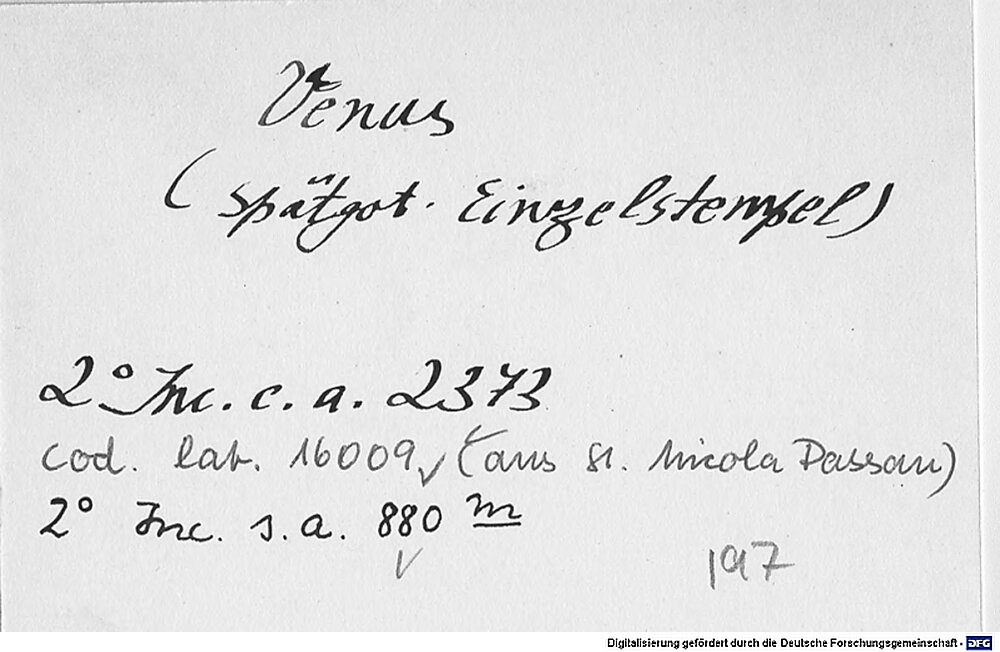 Venus
(spätgot. Einzelstempel)
2° Inc. c. a. 2373
cod. lat. 16009 (aus St. Nicola Passau)
2° Inc. s. a. 880 m
197
Digitalisierung gefördert durch die Deutsche Forschungsgemeinschaft - DFG